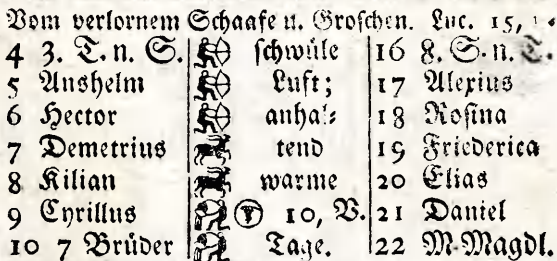 Vom verlornem Schaafe u. Groschen. Luc. 15,
4 3. T. n. S. schwüle 16 8. S. n. T.
5 Anshelm Luft; 17 Alexius
6 Hector anhal: 18 Rosina
7 Demetrius tend 19 Friederica
8 Kilian warme 20 Elias
9 Cyrillus 10, V. 21 Daniel
10 7 Brüder Tage. 22 M. Magdl.